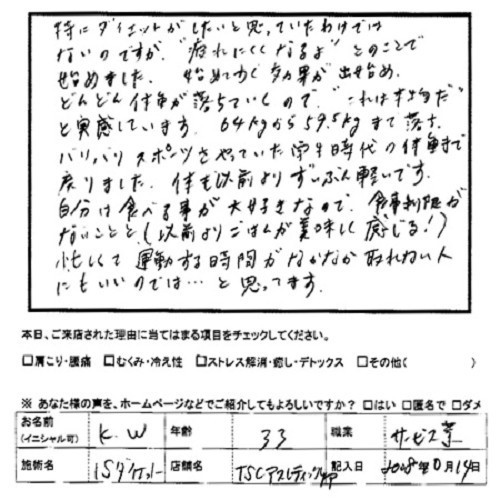 特にダイエットがしたいと思っていたわけでは
ないのですが、"疲れにくくなるよ"とのことで
始めました。始めてすぐ効果が出始め、
どんどん体重が落ちていくので、"これは本物だ"
と実感しています。64kgから59.5kgまで落ち、
バリバリスポーツをやっていた学生時代の体重まで
戻りました。体も以前よりずいぶん軽いです。
自分は食べる事が大好きなので、食事制限が
ないことと、(以前よりごはんが美味しく感じる!)
忙しくて運動する時間がなかなか取れない人
にもいいのでは…と思ってます。
本日、ご来店された理由に当てはまる項目をチェックしてください。
□肩こり・腰痛 □むくみ・冷え性 □ストレス解消・癒し・デトックス □その他( )
※ あなた様の声を、ホームページなどでご紹介してもよろしいですか? □はい □匿名で □ダメ
お名前(イニシャル可) K.W 年齢 33 職業 サービス業
施術名 店舗名 TSCアスレティック 記入日 2008年 月19日